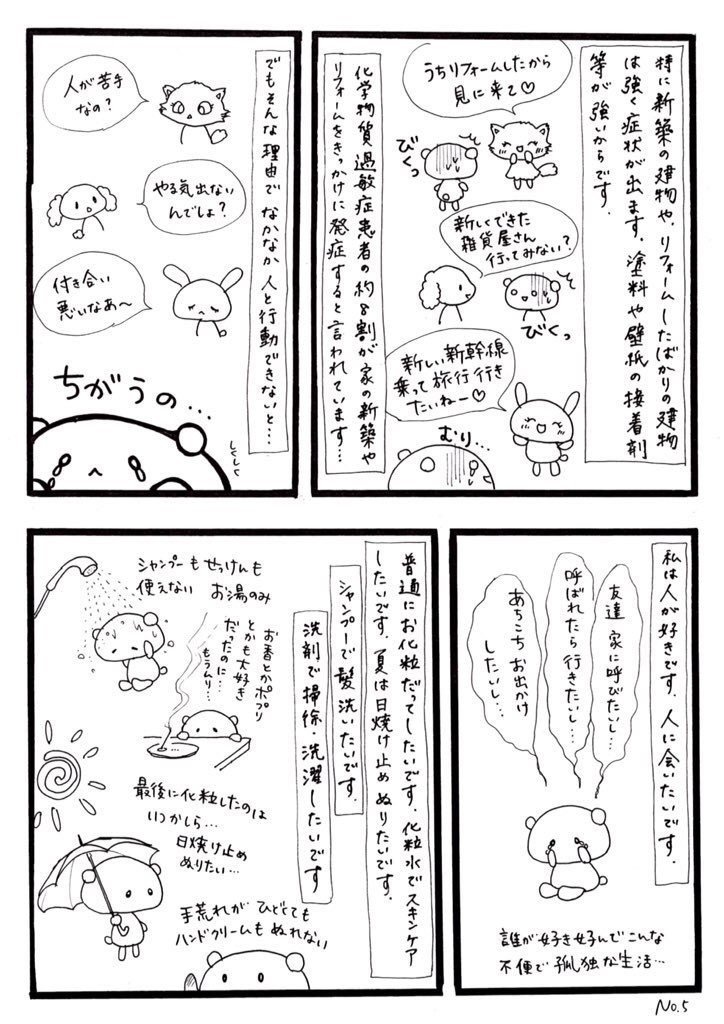 特に新築の建物や、リフォームしたばかりの建物
は強く症状が出ます。塗料や壁紙の接着剤
等が強いからです。
うちリフォームしたから
見に来て♡
びくっ
新しくできた
雑貨屋さん
行ってみない?
びくっ
新しい新幹線
乗って旅行行き
たいねー♡
むり…
化学物質過敏症患者の約8割が家の新築や
リフォームをきっかけに発症すると言われています…
でもそんな理由でなかなか人と行動できないと…
人が苦手
なの?
やる気出ない
んでしょ?
付き合い
悪いなあ〜
ちがうの…
しくしく
私は人が好きです。人に会いたいです。
友達家に呼びたいし…
呼ばれたら行きたいし…
あちこちお出かけ
したいし…
誰が好き好んでこんな
不便で孤独な生活…
普通にお化粧だってしたいです。化粧水でスキンケア
したいです。夏は日焼け止めぬりたいです。
シャンプーで髪洗いたいです。
洗剤で掃除・洗濯したいです
シャンプーもせっけんも
使えない お湯のみ
お香とかポプリ
とかも大好き
だったのに…
もうムリ…
最後に化粧したのは
いつかしら…
日焼け止め
ぬりたい…
手荒れがひどくても
ハンドクリームもぬれない
No.5